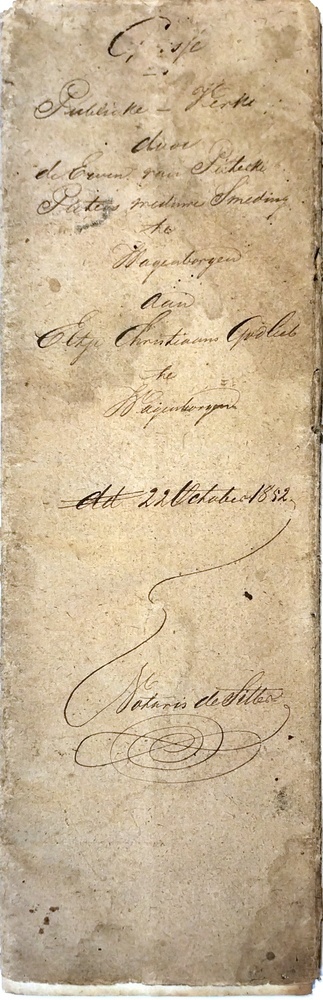 Copije
Publieke - Verko
door
de Erven van
Pieters weduwe Smeding
te
Wagenborgen
aan
Eltje Christiaans Godlieb
te
Wagenborgen
dd 22 October 1852
Notaris de Sitter